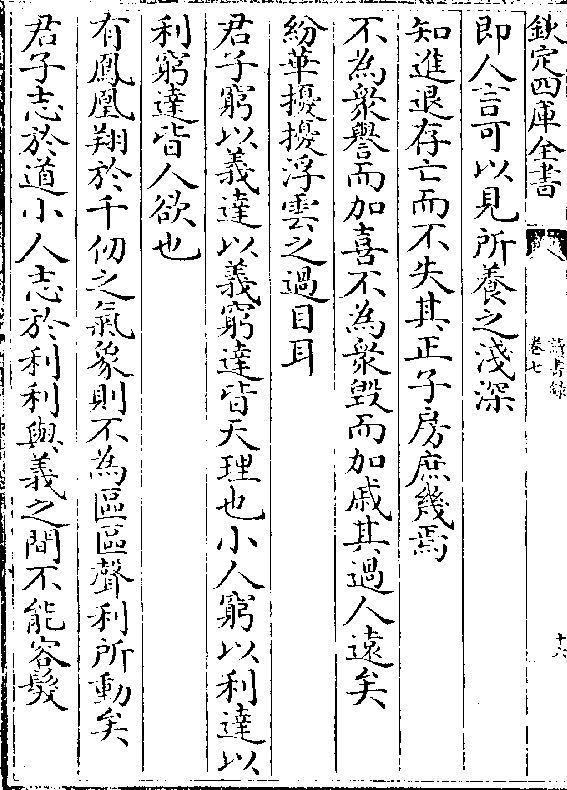 欽定四庫全書
讀書錄
卷七
十六
即人言可以見所養之淺深
知進退存亡而不失其正子房庶幾焉
不為衆譽而加喜不為衆毀而加戚其過人遠矣
紛華擾擾浮雲之過目耳
君子窮以義達以義窮達皆天理也小人窮以利達以
利窮達皆人欲也
有鳳凰翔於千仞之氣象則不為區區聲利所動矣
君子志於道小人志於利利與義之間不能容髮